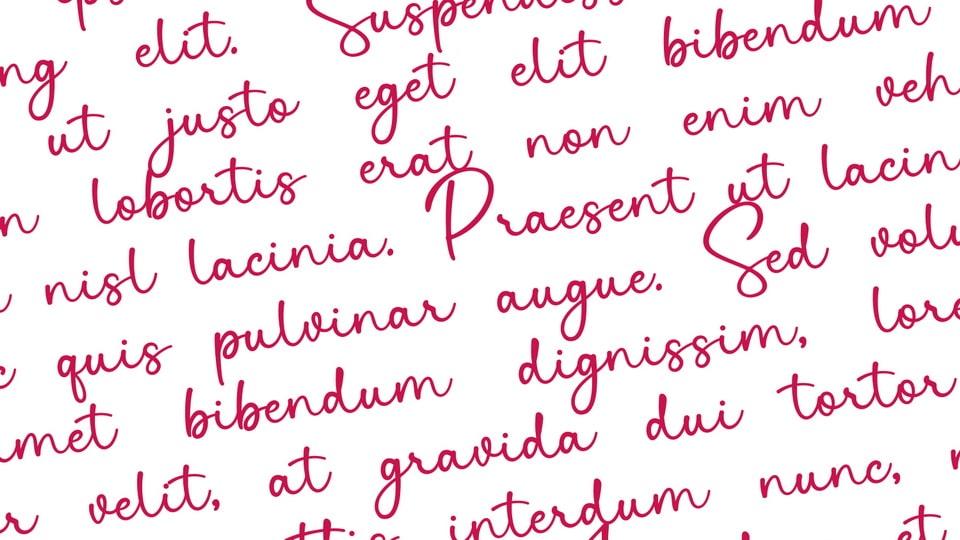 ng elit. Suspendiss
ut justo eget elit bibendum
n lobortis erat non enim veh
nisl lacinia. Praesent ut lacin
c quis pulvinar augue. Sed volu
met bibendum dignissim, lore
r velit, at gravida dui tortor
ttis interdum nunc,
et